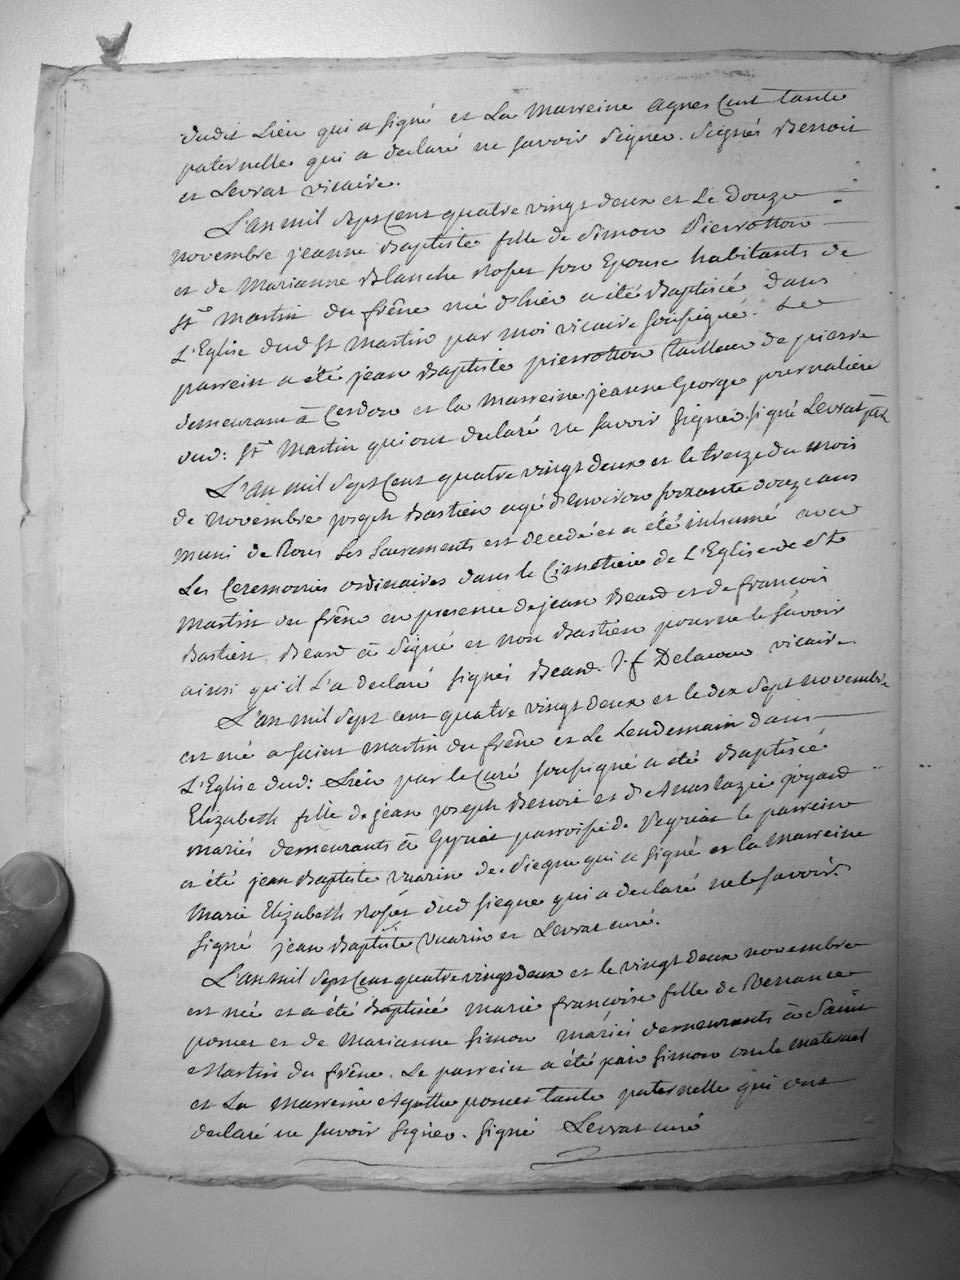 dudit Lieu qui a signé et La Marreine agnes Cust tante
paternelle qui a declaré ne savoir Signer. Signés Benoit
et Levrat vicaire.
L'an mil Sept Cent quatre vingt deux et Le Douze
novembre jeanne Baptiste fille de Simon Pierrotton
et de Marianne Blanche Rosset son Epouse habitants de
st Martin du frêne né d'hier a été Baptisée dans
L'Eglise dud St Martin par moi vicaire soussigné. Le
parrein a été jean Baptiste pierrotton tailleur de pierre
demeurant à Cerdon et la Marreine jeanne George journaliere
dud: St Martin qui ont declaré ne savoir signer. signé Levrat
L'an mil Sept Cent quatre vingt deux et le treize du mois
de novembre joseph Bastien agé d'environ soixante douze ans
muni de Tous Les Sacrements est decedé et a été inhumé avec
Les Ceremonies ordinaires dans le Cimetiere de L'Eglise de St
Martin du frêne en presence de jean Beard et de francois
Bastien. Beard a Signé et non Bastien pour ne le savoir
ainsi qu'il L'a declaré signés Beard. J. f Delacour vicaire
L'an mil Sept cent quatre vingt deux et le dix Sept novembre
est né a saint Martin du frêne et Le Lendemain dans
L'Eglise dud: Lieu par le Curé soussigné a été Baptisée
Elizabeth fille de jean joseph Benoit et de Anastazie joyard
mariés demeurants à Gyriat parroisse de Veyriat le parrein
a été jean Baptiste Vuarin de Siegne qui a signé et la Marreine
Marie Elizabeth Rosset dud siegne qui a declaré ne le savoir.
signé jean Baptiste Vuarin et Levrat curé.
L'an mil Sept Cent quatre vingt deux et le vingt deux novembre
est née et a été Baptisée Marie francoise fille de Venance
poncet et de Marianne simon mariés demeurants à Saint
Martin du frêne. Le parrein a été simon oncle maternel
et La Marreine Agathe poncet tante paternelle qui ont
declaré ne savoir signer. signé Levrat curé